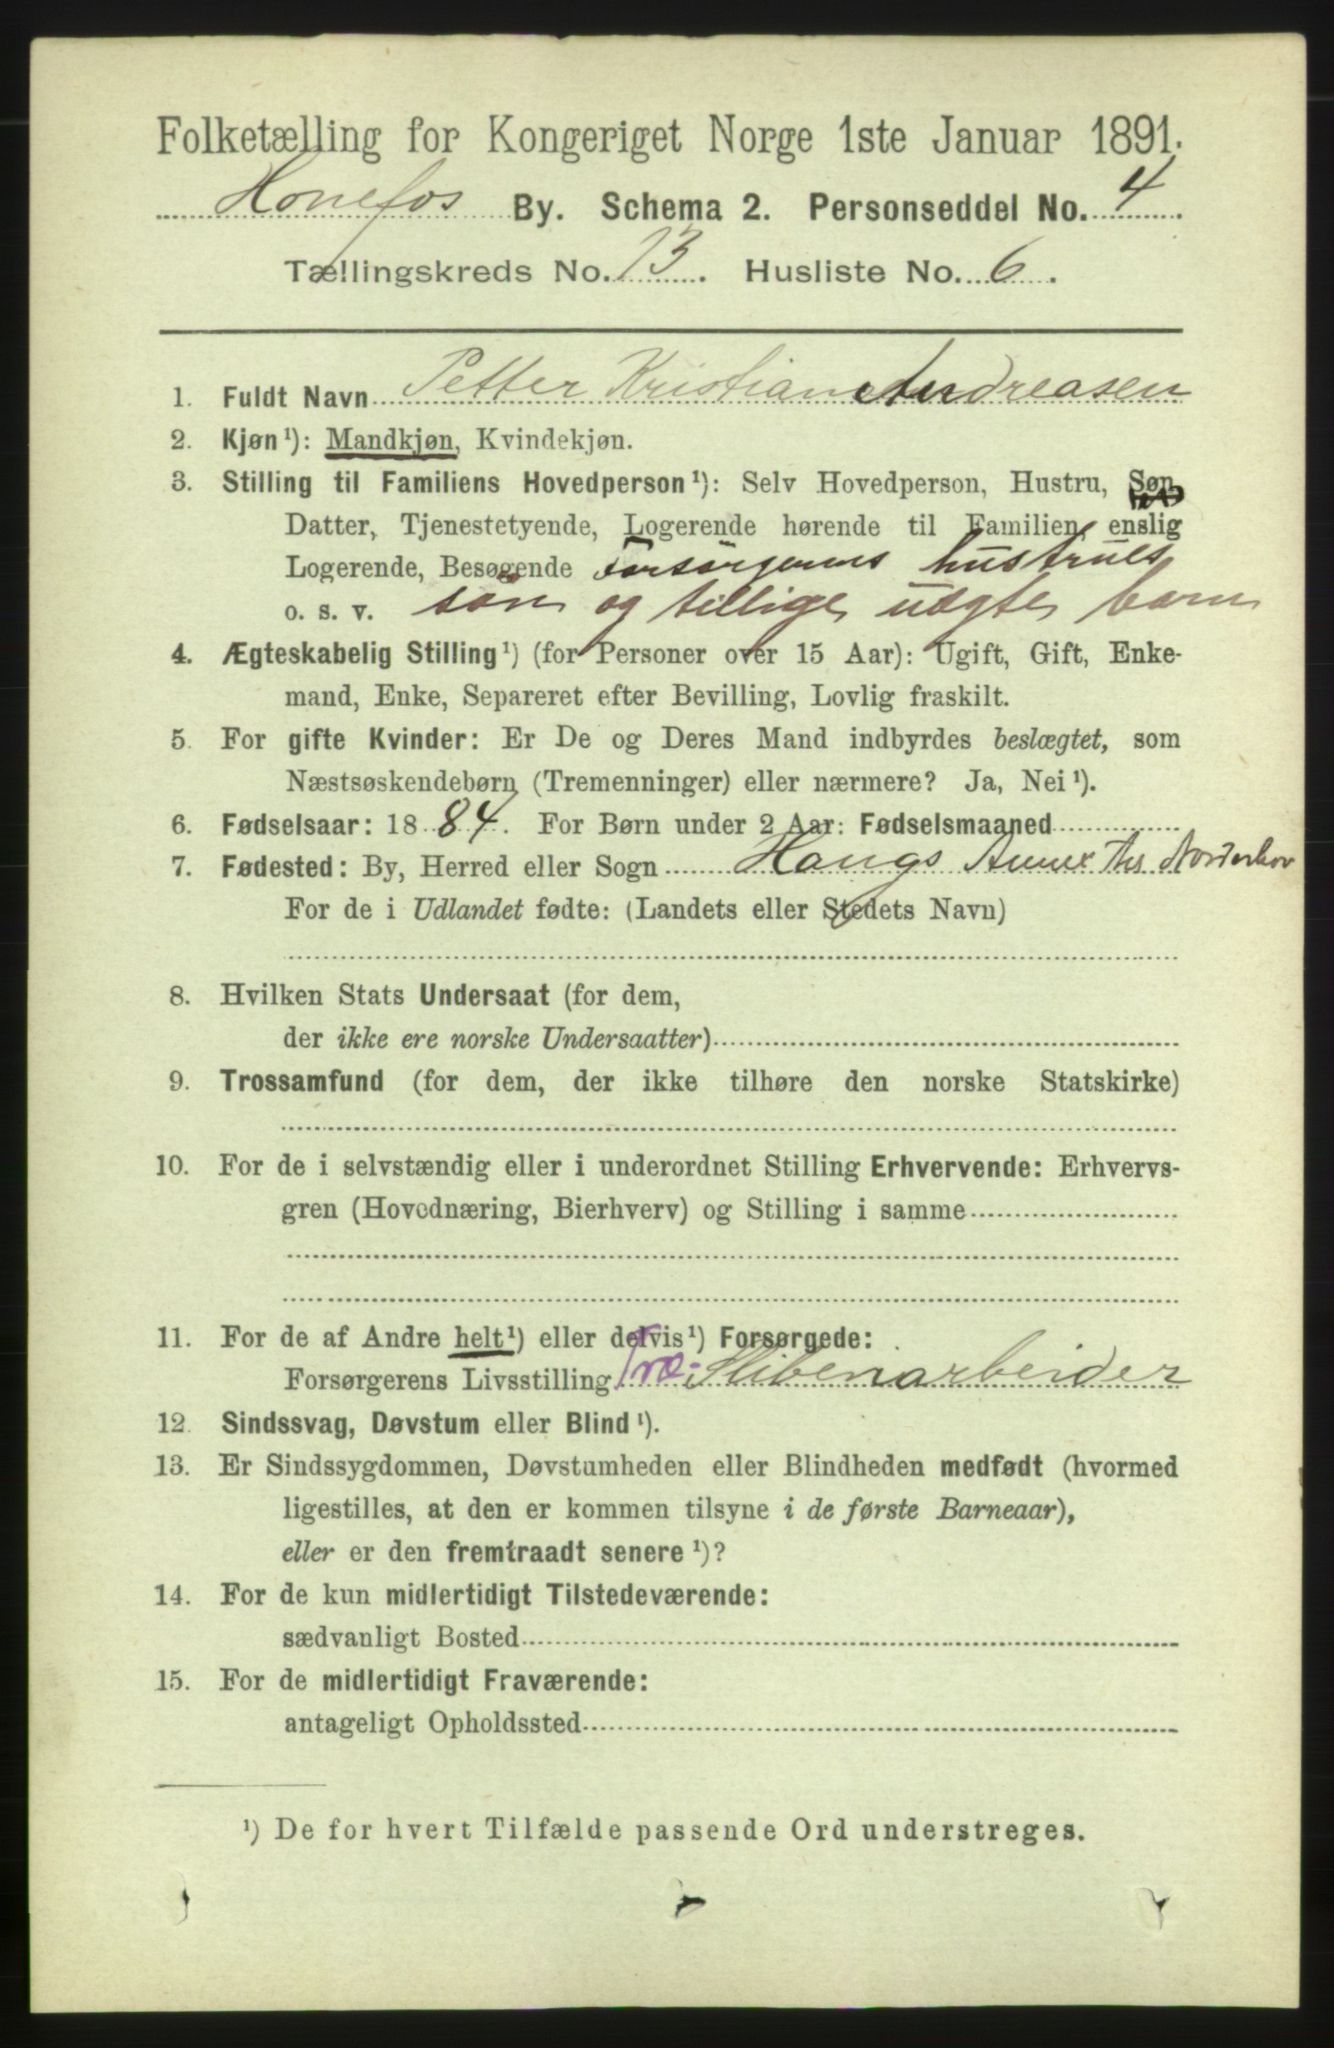 Folketælling for Kongeriget Norge 1ste Januar 1891.
Honefos By. Schema 2. Personseddel No. 4
Tællingskreds No. 13. Husliste No. 6.
1. Fuldt Navn Petter Kristian Andreasen
2. Kjøn¹): Mandkjøn, Kvindekjøn.
3. Stilling til Familiens Hovedperson¹): Selv Hovedperson, Hustru, Søn
Datter, Tjenestetyende, Logerende hørende til Familien, enslig
Logerende, Besøgende Forsørgerens hustrues
o. s. v. søn og tillige uægte barn
4. Ægteskabelig Stilling¹) (for Personer over 15 Aar): Ugift, Gift, Enke-
mand, Enke, Separeret efter Bevilling, Lovlig fraskilt.
5. For gifte Kvinder: Er De og Deres Mand indbyrdes beslægtet, som
Næstsøskendebørn (Tremenninger) eller nærmere? Ja, Nei¹).
6. Fødselsaar: 1884. For Børn under 2 Aar: Fødselsmaaned
7. Fødested: By, Herred eller Sogn Haugs Annex Norderhov
For de i Udlandet fødte: (Landets eller Stedets Navn)
8. Hvilken Stats Undersaat (for dem,
der ikke ere norske Undersaatter)
9. Trossamfund (for dem, der ikke tilhøre den norske Statskirke)
10. For de i selvstændig eller i underordnet Stilling Erhvervende: Erhvervs-
gren (Hovednæring, Bierhverv) og Stilling i samme
11. For de af Andre helt¹) eller delvis¹) Forsørgede:
Forsørgerens Livsstilling Træ-Slibenarbeider
12. Sindssvag, Døvstum eller Blind¹).
13. Er Sindssygdommen, Døvstumheden eller Blindheden medfødt (hvormed
ligestilles, at den er kommen tilsyne i de første Barneaar),
eller er den fremtraadt senere¹)?
14. For de kun midlertidigt Tilstedeværende:
sædvanligt Bosted
15. For de midlertidigt Fraværende:
antageligt Opholdssted
¹) De for hvert Tilfælde passende Ord understreges.